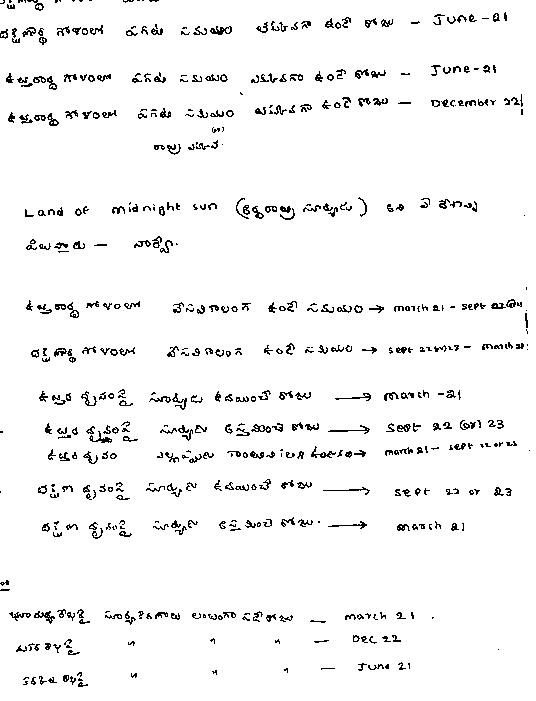 దక్షిణార్థ గోళంలో పగటి సమయం తక్కువగా ఉండే రోజు – June-21
ఉత్తరార్థ గోళంలో పగటి సమయం ఎక్కువగా ఉండే రోజు – June-21
ఉత్తరార్థ గోళంలో పగటి సమయం తక్కువగా ఉండే రోజు – December 22
(or)
రాత్రి ఎక్కువ.
Land of midnight sun (అర్థరాత్రి సూర్యుడు) అని ఏ దేశాన్ని
పిలుస్తారు – నార్వే.
ఉత్తరార్థ గోళంలో వేసవికాలంగా ఉండే సమయం → march 21 – sept 22
దక్షిణార్థ గోళంలో వేసవికాలంగా ఉండే సమయం → sept 22 or 23 – march 21
ఉత్తర ధృవంపై సూర్యుడు ఉదయించే రోజు → march -21
ఉత్తర ధృవంపై సూర్యుడు అస్తమించే రోజు → sept 22 (or) 23
ఉత్తర ధృవం → march 21 – sept 22 or 23
దక్షిణ ధృవంపై సూర్యుడు ఉదయించే రోజు → sept 22 or 23
దక్షిణ ధృవంపై సూర్యుడు అస్తమించే రోజు. → march 21
భూమధ్యరేఖపై సూర్యకిరణాలు లంబంగా పడే రోజు – march 21.
మకరరేఖపై " " " – Dec 22
కర్కటరేఖపై " " " – June 21